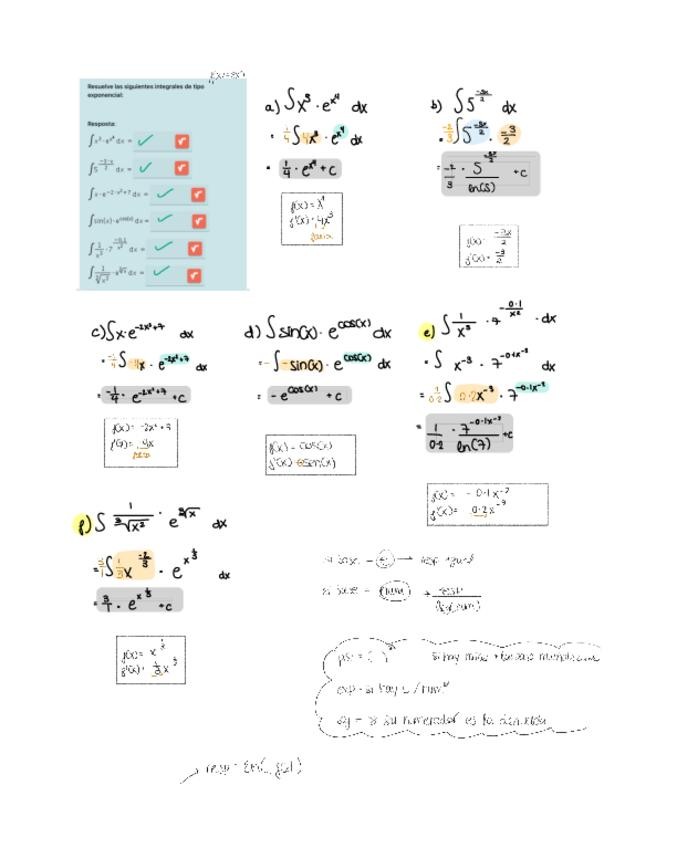 Resuelve las siguientes integrales de tipo
exponencial:
Resposta:
∫x³·e^(x⁴) dx =
∫5^(-3·x/2) dx =
∫x·e^(-2·x²+7) dx =
∫sin(x)·e^(cos(x)) dx =
∫1/x³·7^(-0.1/x²) dx =
∫1/∛x²·e^(∛x) dx =
a) ∫x³·e^(x⁴) dx
= 1/4 ∫4x³·e^(x⁴) dx
= 1/4·e^(x⁴)+c
g(x)= x⁴
g'(x)= 4x³
b) ∫5^(-3x/2) dx
= -2/3 ∫5^(-3x/2)·-3/2
= -2/3·5^(-3x/2)/ln(5) +c
g(x)= -3x/2
g'(x)= -3/2
c) ∫x·e^(-2x²+7) dx
= -1/4 ∫-4x·e^(-2x²+7) dx
= -1/4·e^(-2x²+7) +c
g(x)= -2x²+7
g'(x)= -4x
d) ∫sin(x)·e^(cos(x)) dx
= -∫-sin(x)·e^(cos(x)) dx
= -e^(cos(x)) +c
g(x)= cos(x)
g'(x)= -sen(x)
e) ∫1/x³·7^(-0.1/x²)·dx
= ∫x⁻³·7^(-0.1x⁻²) dx
= 1/0.2 ∫0.2x⁻³·7^(-0.1x⁻²)
= 1/0.2·7^(-0.1x⁻²)/ln(7) +c
g(x)= -0.1x⁻²
g'(x)= 0.2x⁻³
f) ∫1/∛x²·e^(∛x) dx
= 3/1 ∫1/3 x^(-2/3)·e^(x^(1/3)) dx
= 3/1·e^(x^(1/3)) +c
g(x)= x^(1/3)
si base = e → resp igual
si base = num → resp/ln(num)
exp = si hay e/num^x
si su numerador es la derivada
→ resp = ln(g(x))